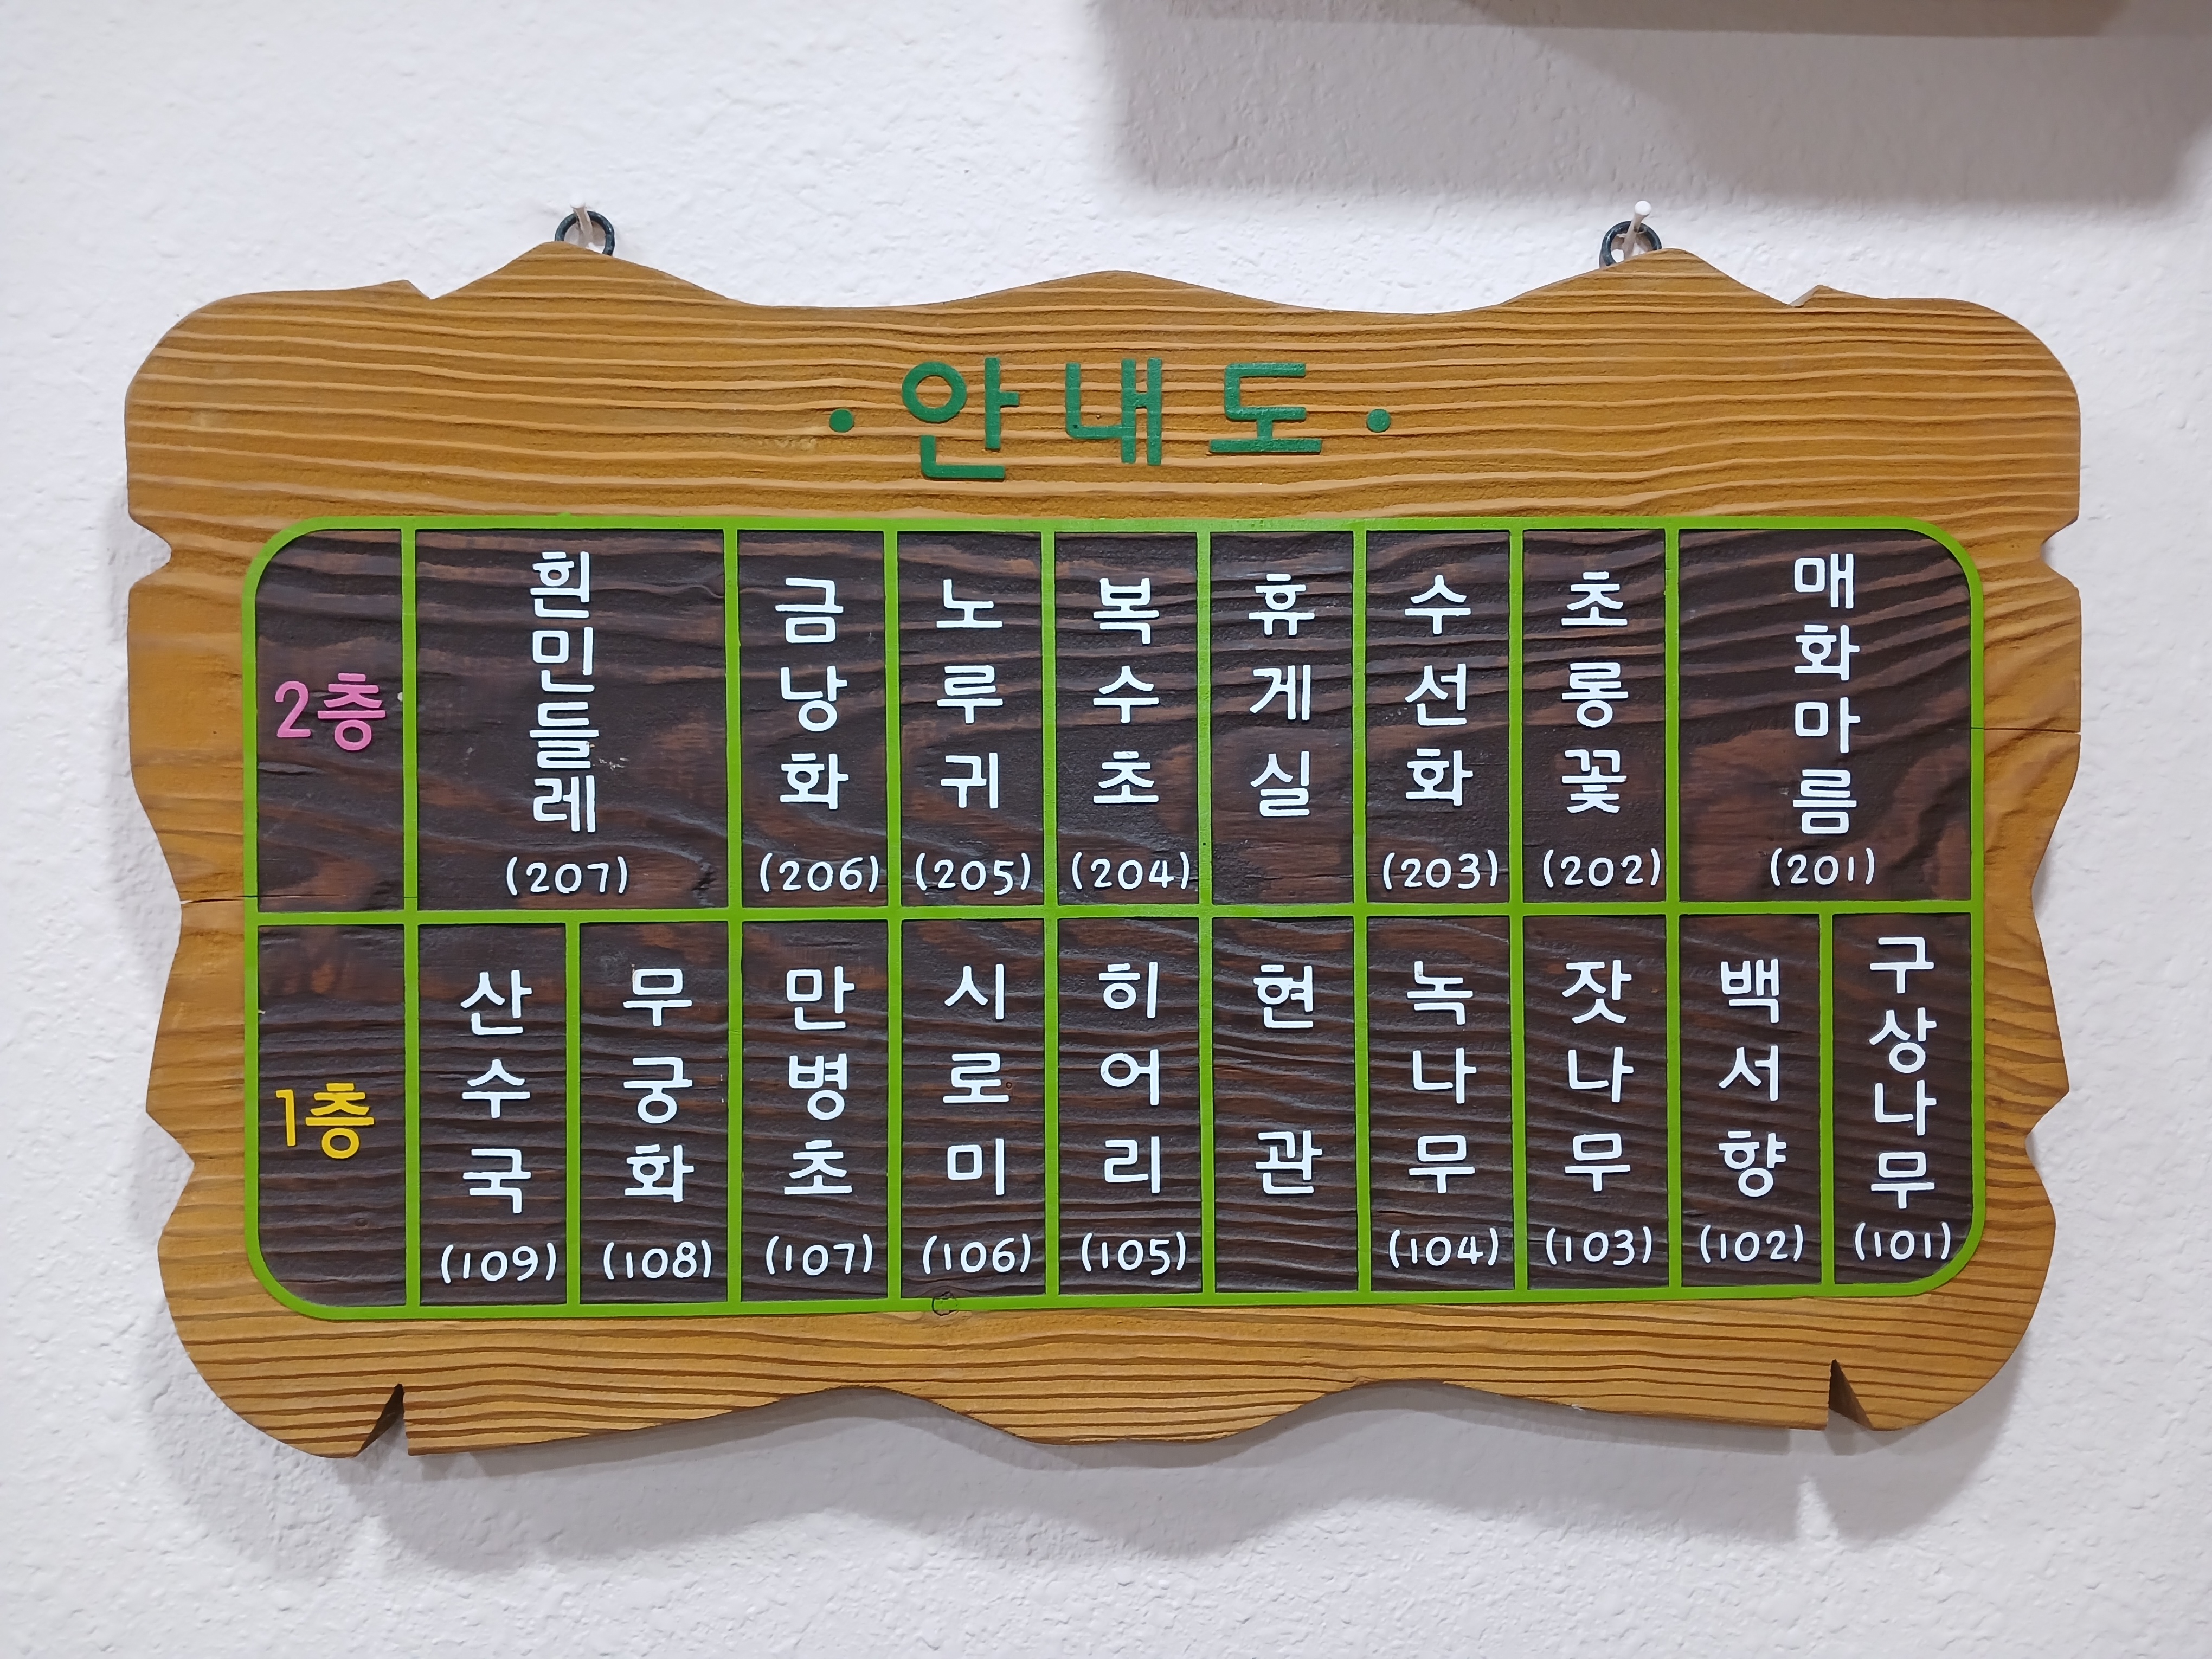 ·안내도·
2층
흰민들레
(207)
금낭화
(206)
노루귀
(205)
복수초
(204)
휴게실
수선화
(203)
초롱꽃
(202)
매화마름
(201)
1층
산수국
(109)
무궁화
(108)
만병초
(107)
시로미
(106)
히어리
(105)
현관
녹나무
(104)
잣나무
(103)
백서향
(102)
구상나무
(101)